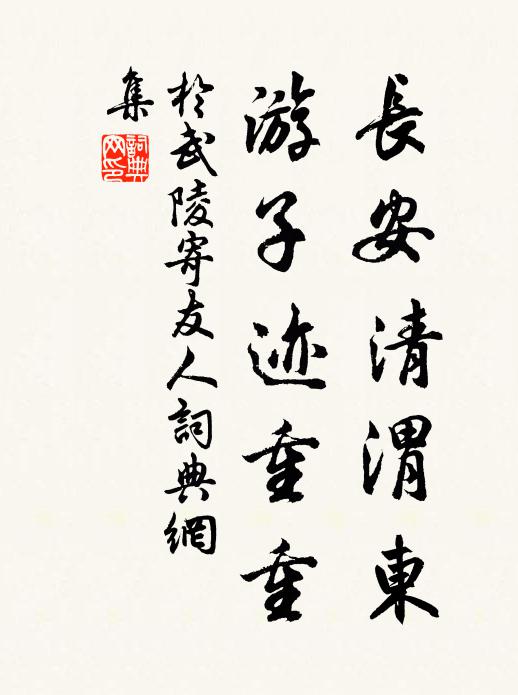 長安清渭東
游子迹重重
於武陵寄友人詞典網
集
詞典網印